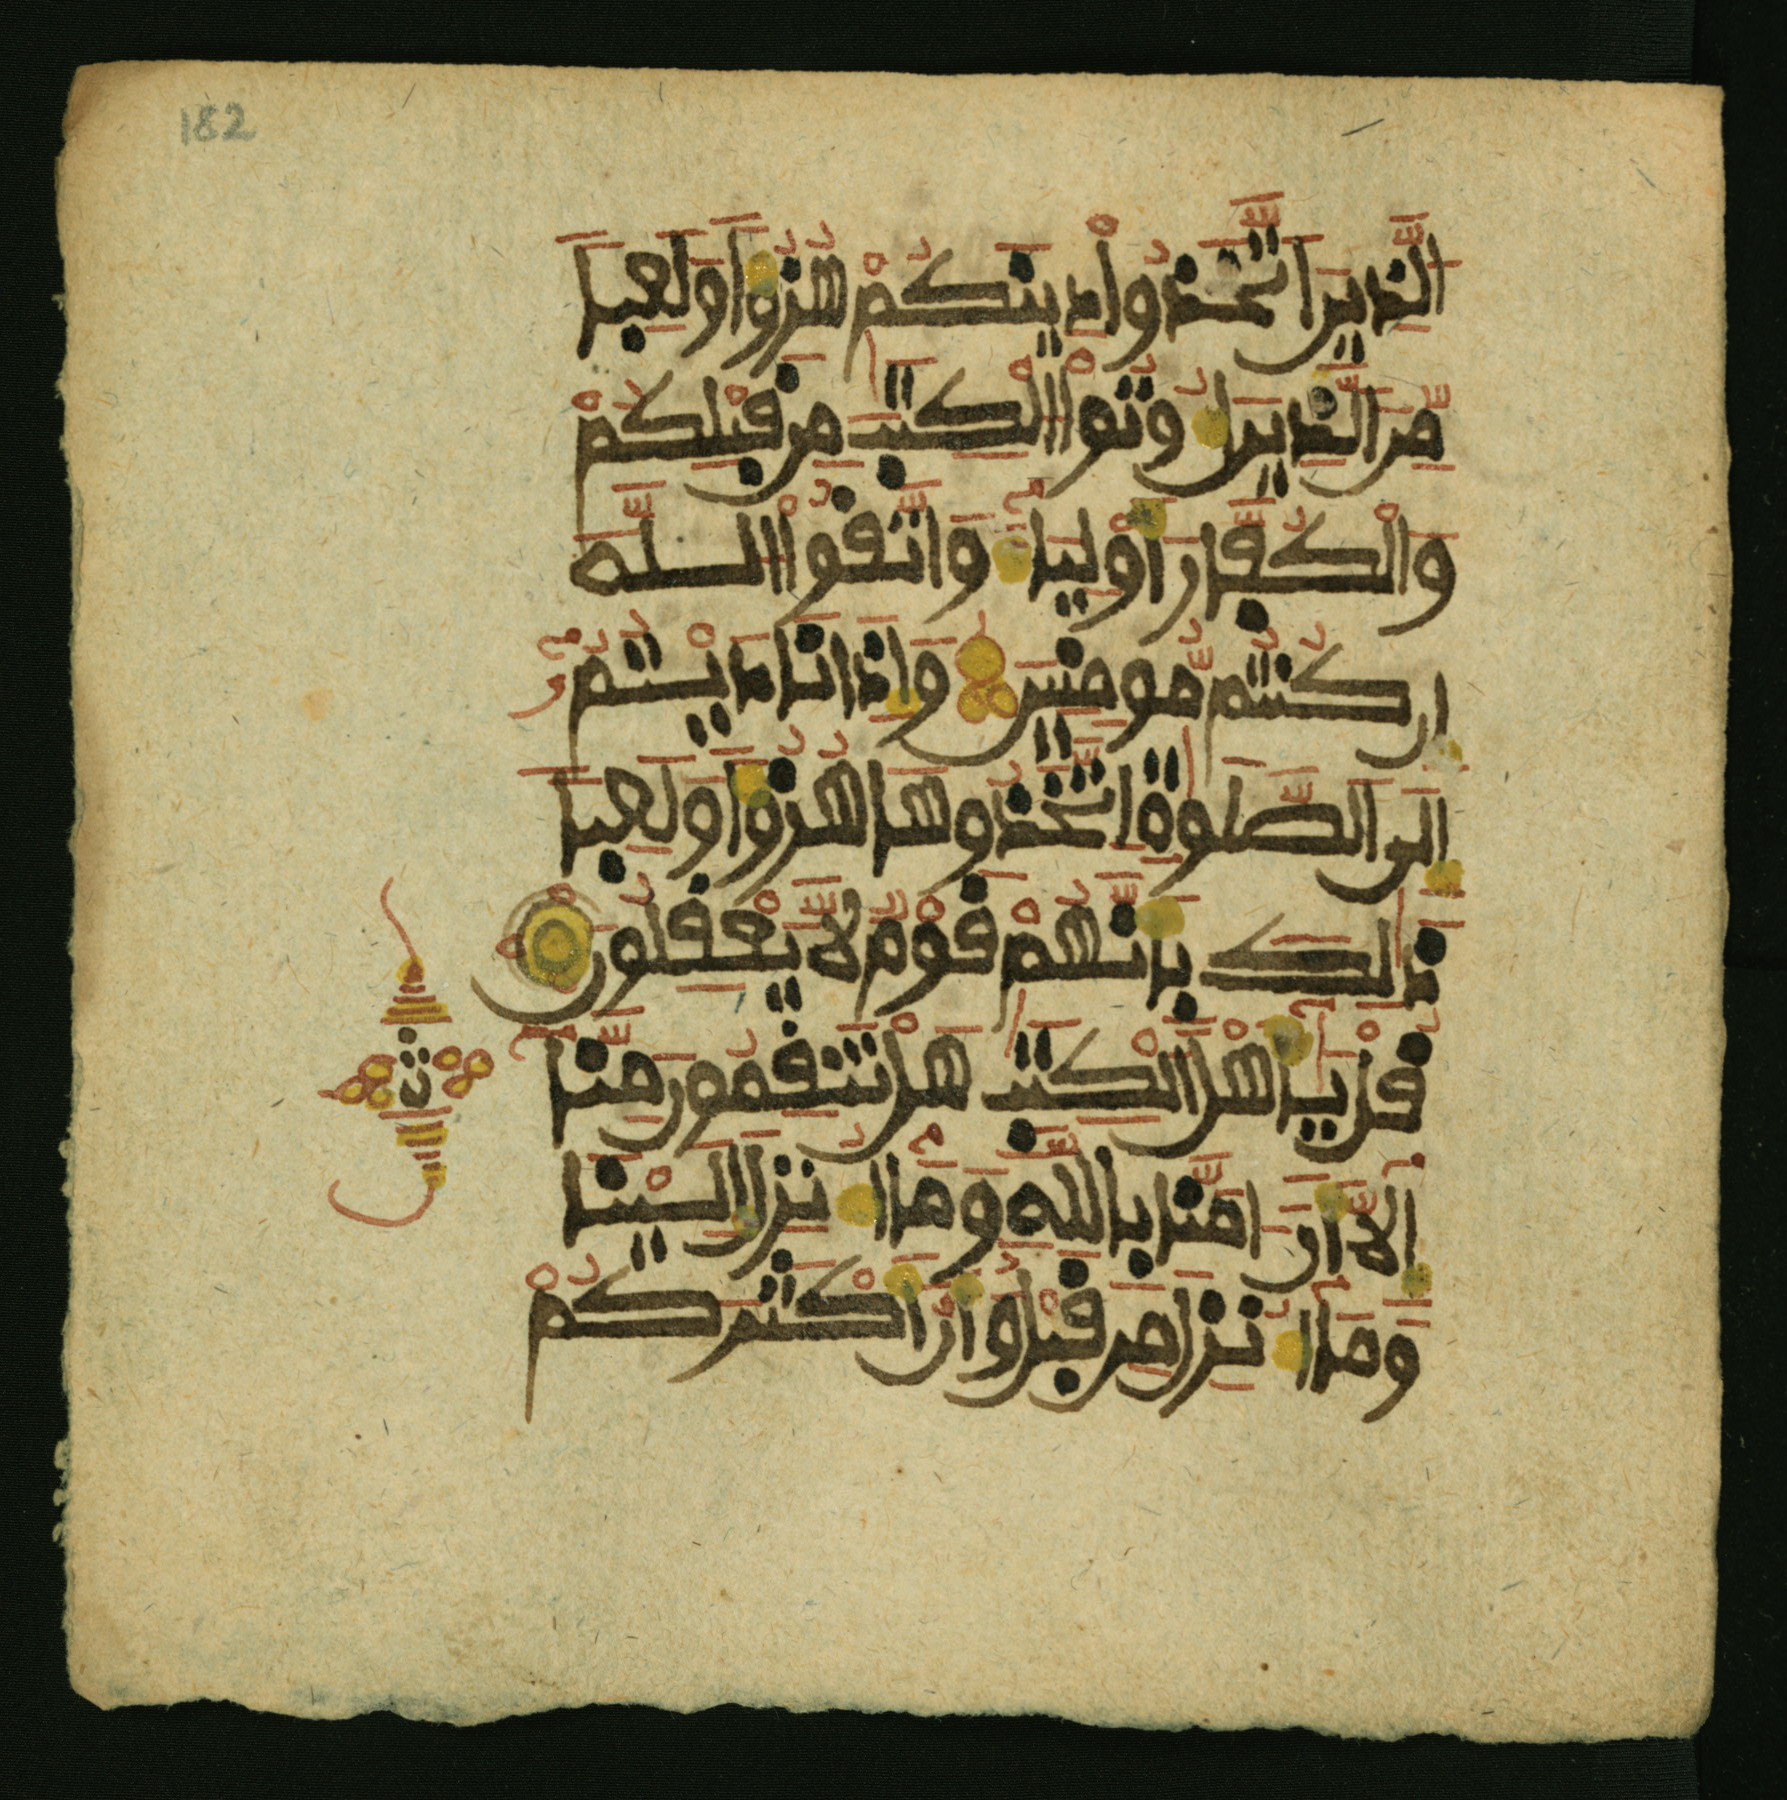 182
الَّذِينَ اتَّخَذُواْ دِينَكُمْ هُزُؤاً وَلَعِباً
مِّنَ الَّذِينَ أُوتُواْ الْكِتَٰبَ مِن قَبْلِكُمْ
وَالْكُفَّارَ أَوْلِيَآءَ وَاتَّقُواْ اللَّهَ
إِن كُنتُم مُّومِنِينَ وَإِذَا نَادَيْتُمُۥٓ
إِلَى الصَّلَوٰةِ اتَّخَذُوهَا هُزُؤاً وَلَعِباً
ذَٰلِكَ بِأَنَّهُمْ قَوْمٌ لاَّ يَعْقِلُونَ
ث
قُلْ يَٰٓأَهْلَ الْكِتَٰبِ هَلْ تَنقِمُونَ مِنَّآ
إِلآَّ أَنَ امَنَّا بِاللَّهِ وَمَآ أُنزِلَ إِلَيْنَا
وَمَآ أُنزِلَ مِن قَبْلُ وَأَنَّ أَكْثَرَكُمْ